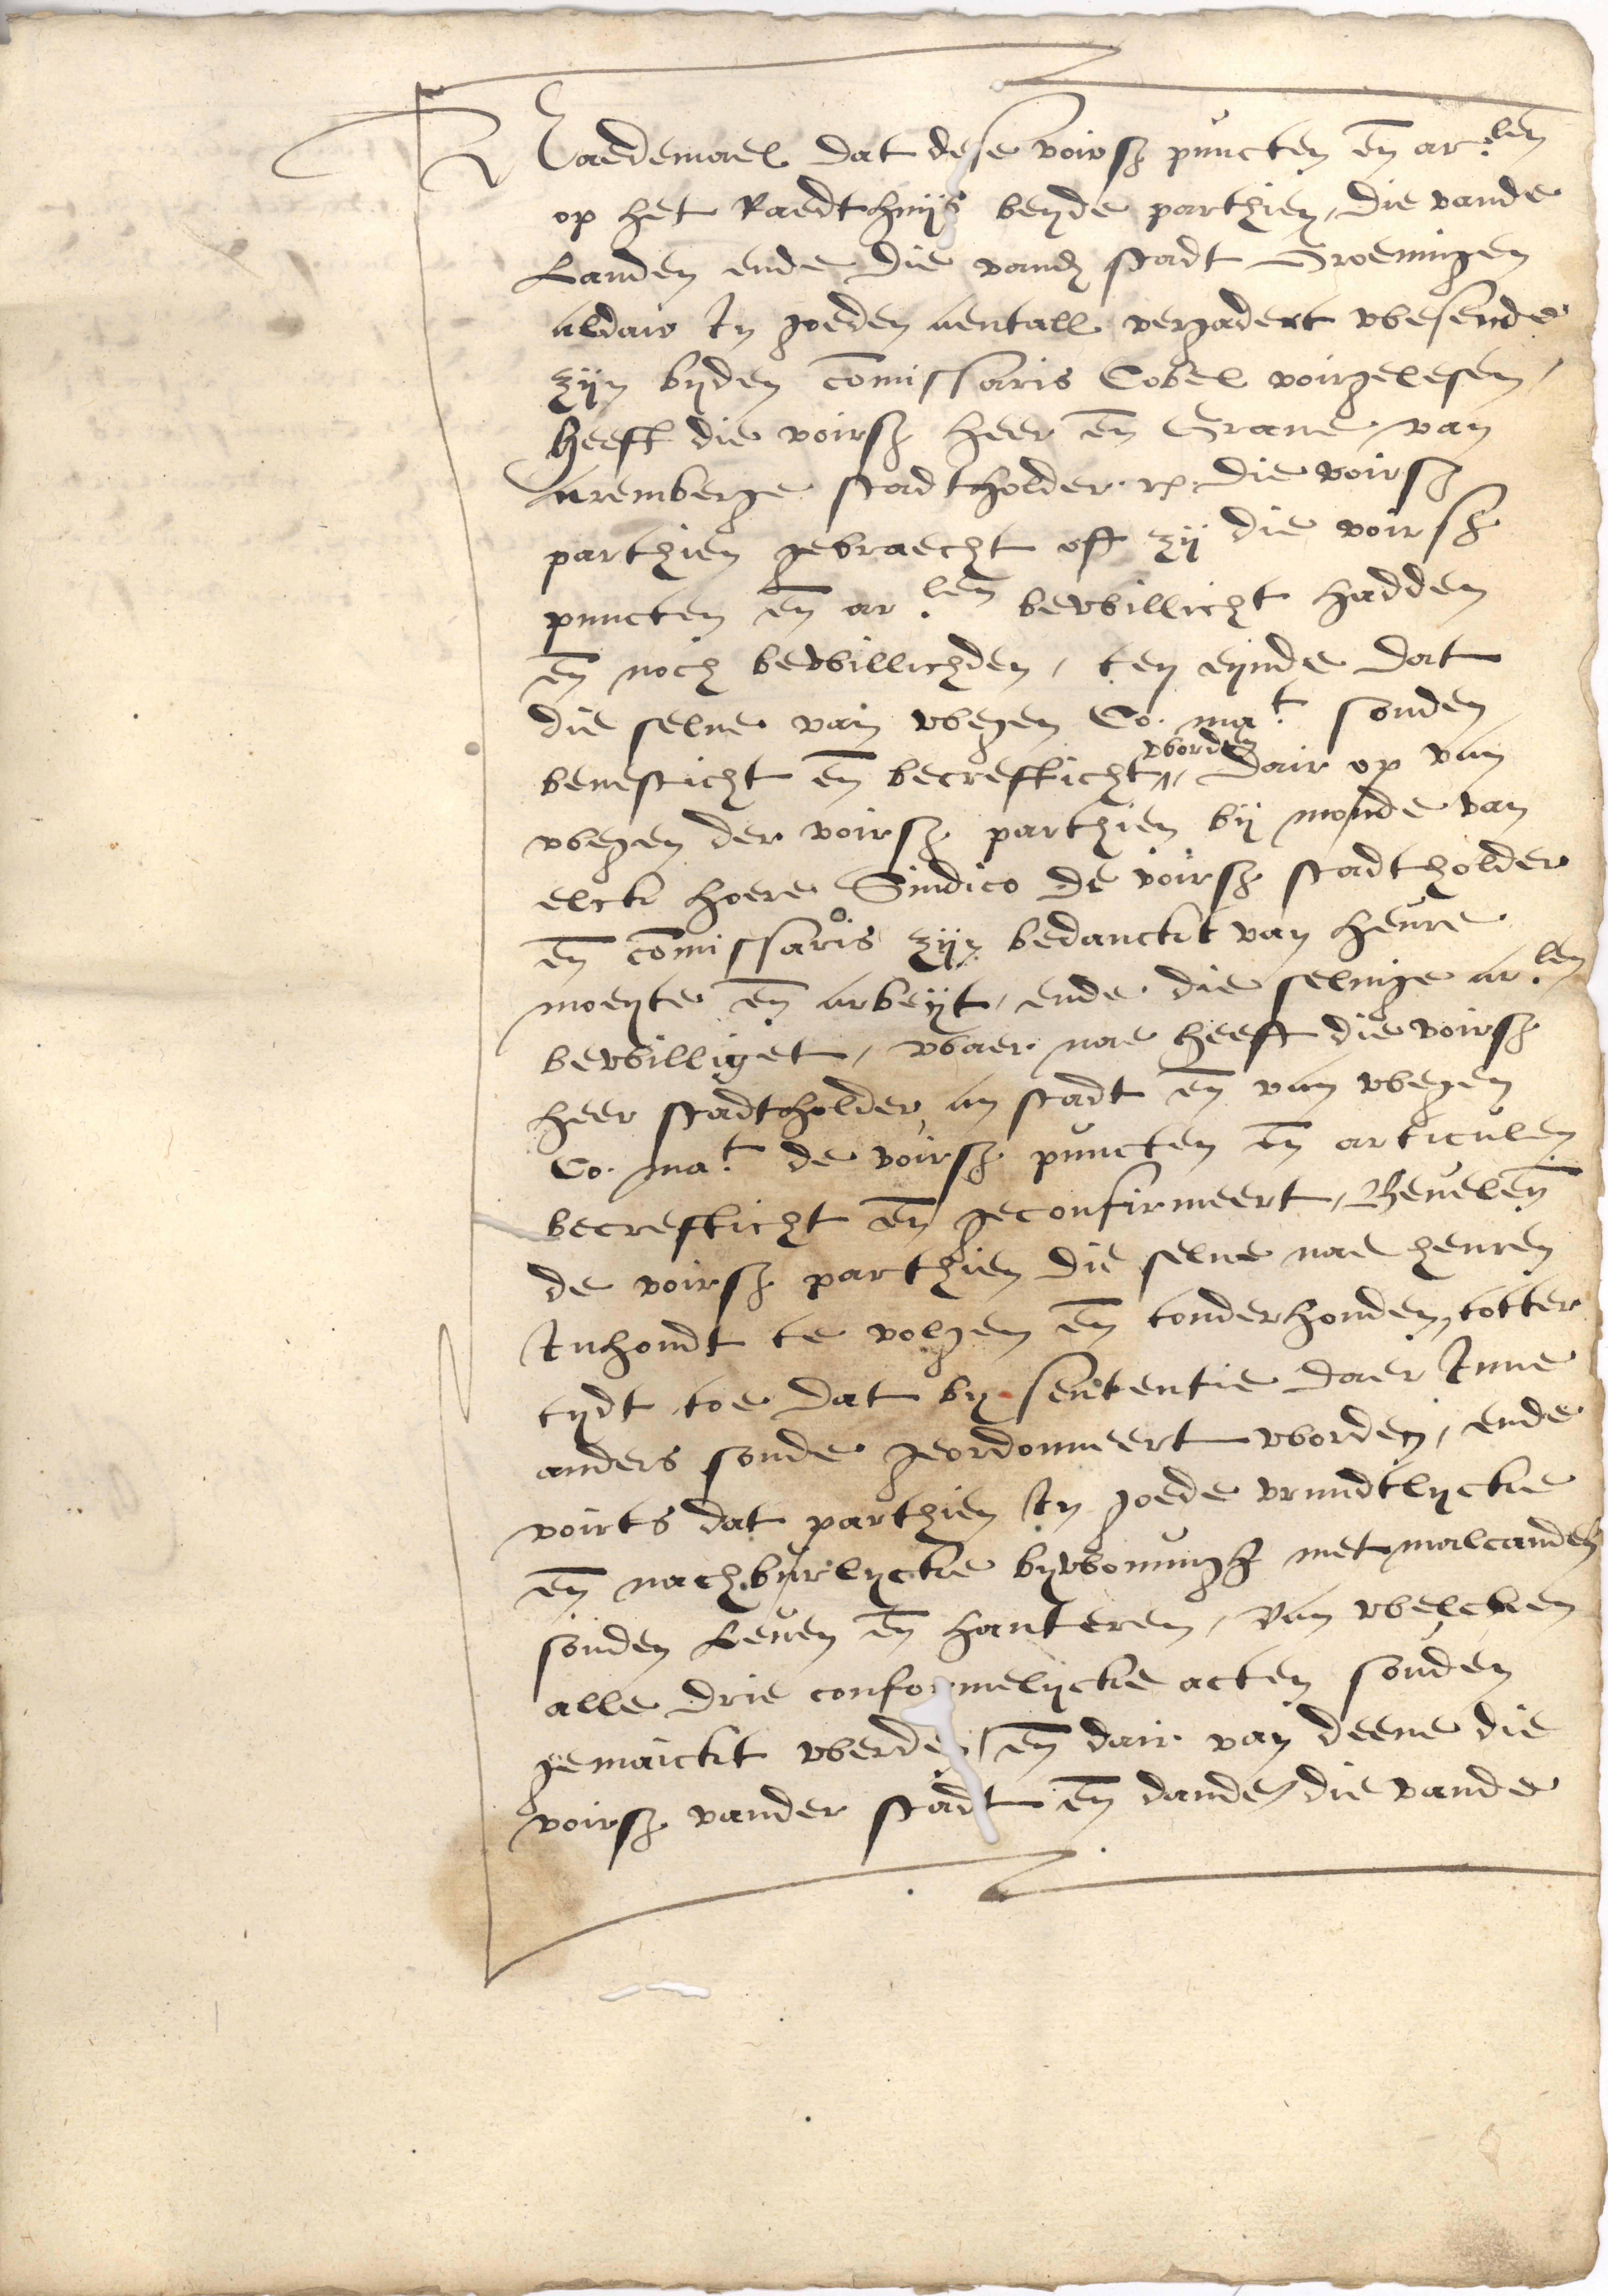 Naedemael dat dese voirsz puncten en̄ ar:len
op het Raedthuijs beyde parthien, die vande
Landen ende die vandz stadt Groeningen
aldair In goeden aentall vergadert wesende
zijn byden com̄issaris Cobel voirgelesen,
heeft die voirsz heer en̄ Graue van
Aremberge stadtholder rc. die voirsz
parthien gebraecht off zij die voirsz
puncten en̄ ar:len bewillicht hadden
en̄ noch bewillichden, ten eynde dat
die selue van wegen Co. ma:t souden
beuesticht en̄ becrefticht worden, dair op van
wegen der voirsz parthien bij monde van
elck hoere Sindico de voirsz stadtholder
en̄ com̄issaris zijn bedanckt van heure
moeyte en̄ arbeyt, ende die seluige ar:len
bewilliget, waer nae heeft die voirsz
heer stadtholder, an stadt en̄ van wegen
Co. ma:t de voirsz puncten en̄ articulen
becrefticht en̄ geconfirmeert, Beuelen̄
de voirsz parthien die selue nae heuren
Inhoudt te volgen en̄ tonderhouden, totter
tydt toe dat by sententie daer Inne
anders soude geordonneert worden, ende
voirts dat parthien In goede vrundtlycke
en̄ nachburlycke bywonungh met malcanderen
souden Leuen en̄ hanteren, Van welcken
alle drie conformelycke acten souden
gemaickt werden, en̄ dair van deene die
voirsz vander stadt en̄ dander die vande